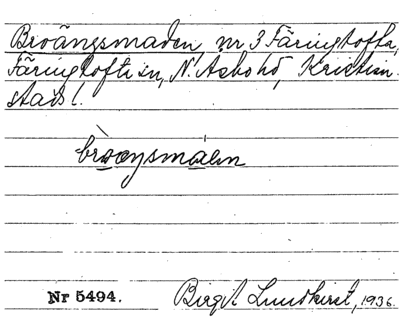 Broängsmaden nr 3 Färingtofta,
Färingtofta sn, N. Asbo hd, Kristian-
stads l.
Nr 5494.
Birgit Lundkvist, 1936.